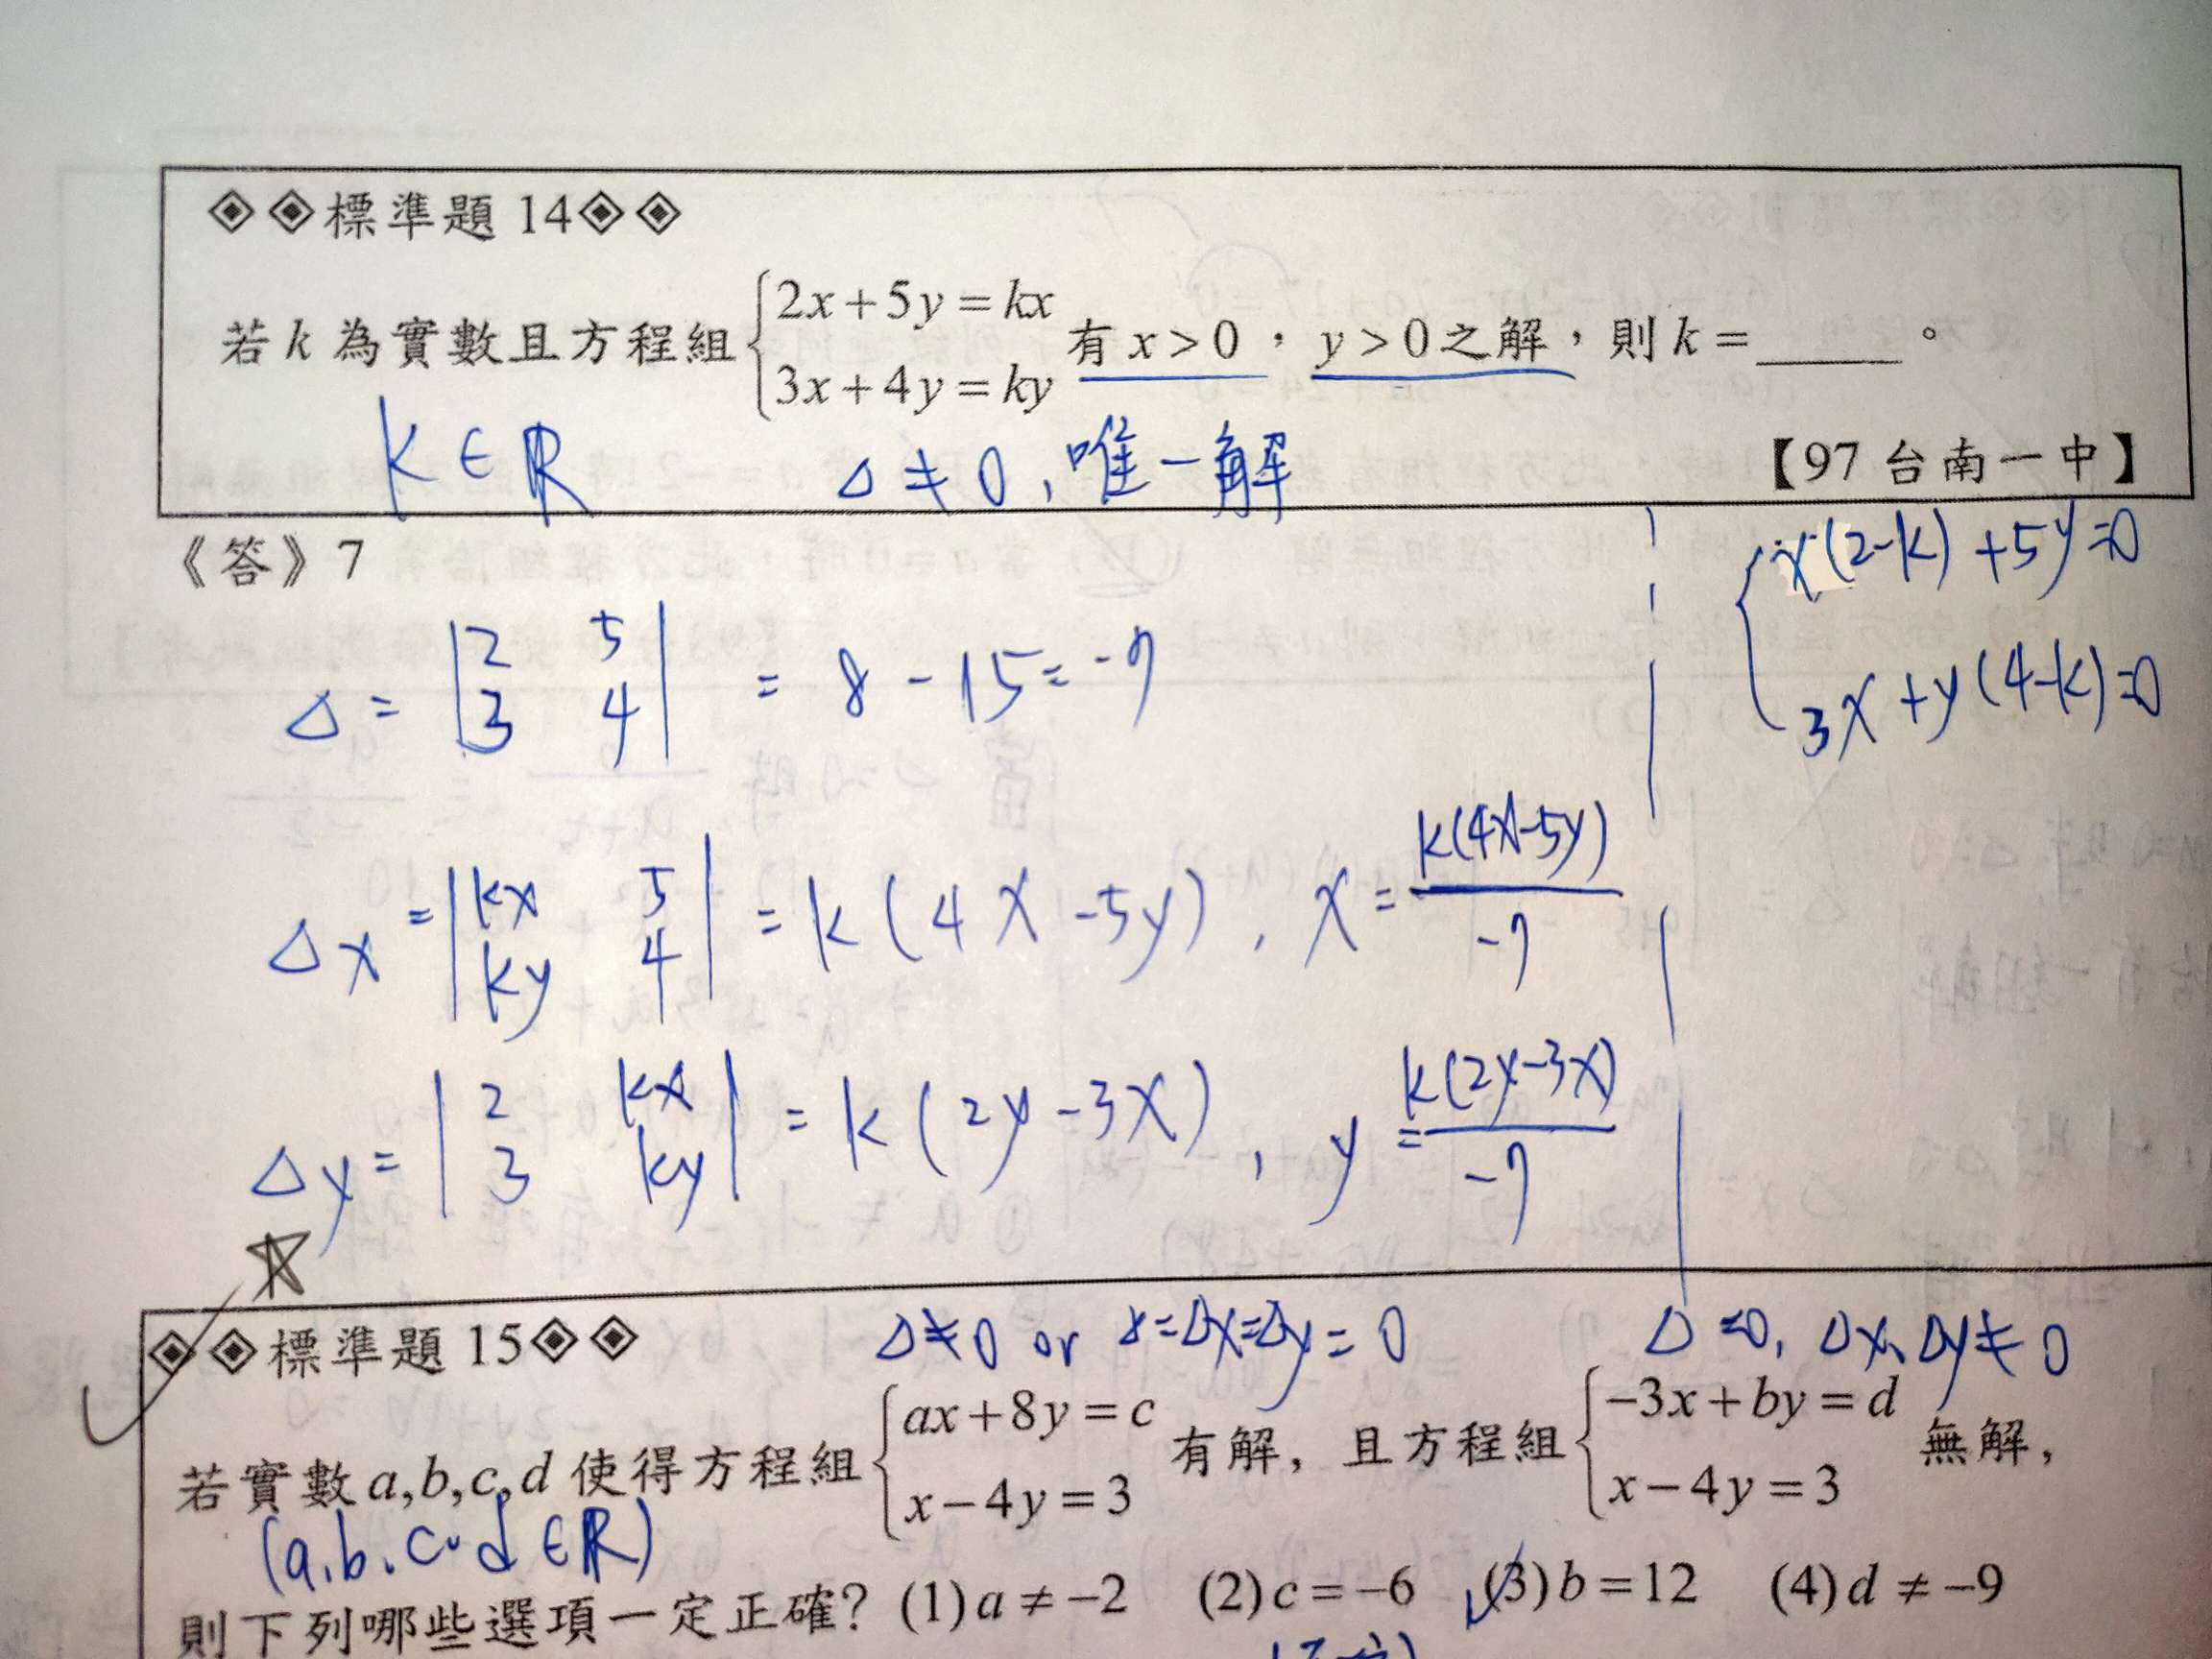 ◈◈標準題 14◈◈
若 k 為實數且方程組 { 2x+5y=kx
3x+4y=ky 有 x>0，y>0之解，則 k=______。
k∈ℝ
Δ≠0, 唯一解
【97 台南一中】
《答》7
{ x(2-k)+5y=0
3x+y(4-k)=0
Δ= |2 5
3 4| = 8-15=-7
Δx= |kx 5
ky 4| = k(4x-5y), x= k(4x-5y)/-7
Δy= |2 kx
3 ky| = k(2y-3x), y= k(2y-3x)/-7
◈◈標準題 15◈◈
Δ≠0 or Δ=Δx=Δy=0
Δ=0, Δx、Δy≠0
若實數 a,b,c,d 使得方程組 { ax+8y=c
x-4y=3 有解，且方程組 { -3x+by=d
x-4y=3 無解，
(a.b.c.d∈ℝ)
則下列哪些選項一定正確？ (1)a≠-2 (2)c=-6 (3)b=12 (4)d≠-9